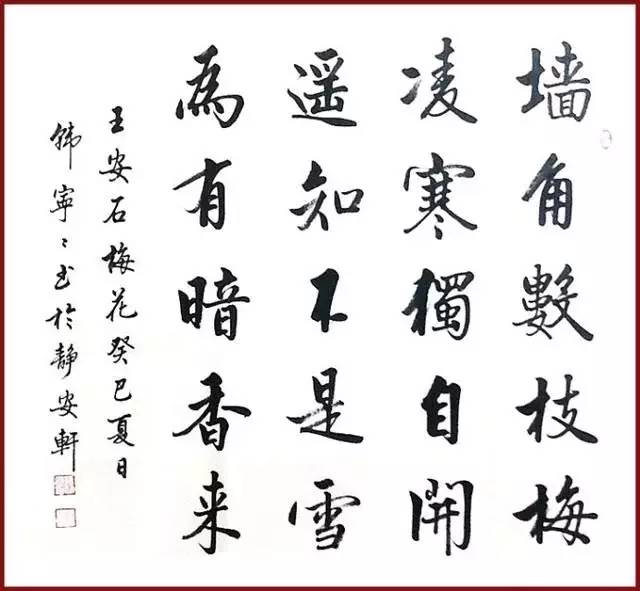 墙角數枝梅
凌寒獨自開
遥知不是雪
為有暗香来
王安石梅花癸巳夏日
韩寧寧书於静安軒